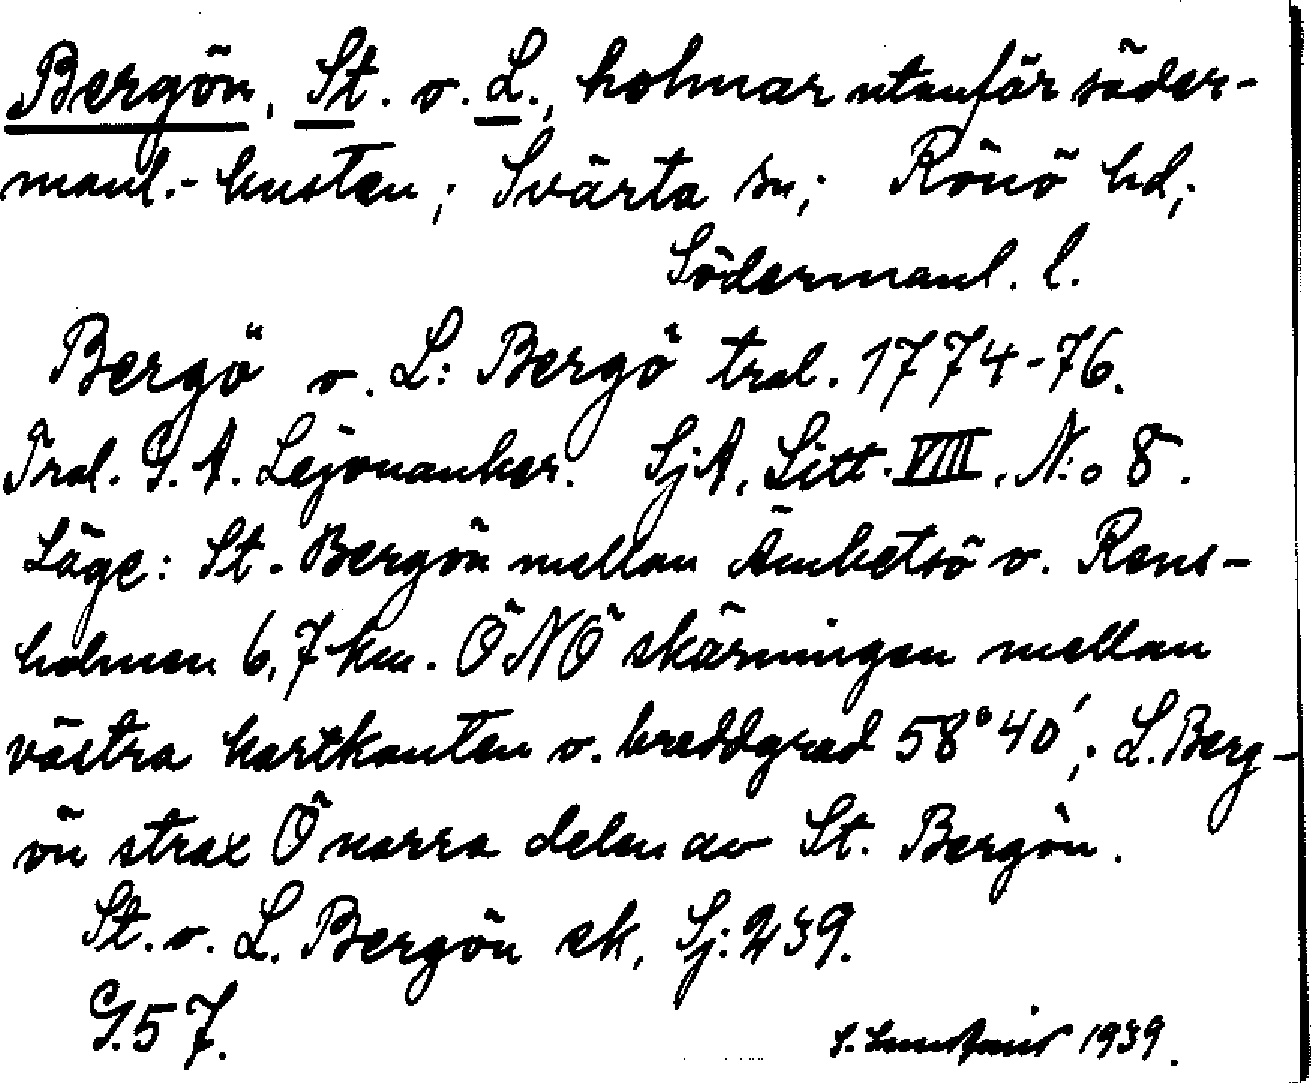 Bergön, St. o. L., holmar utanför söder-
manl.- kusten; Svärta sn; Rönö hd;
Södermanl. l.
Bergö o. L: Bergö tral. 1774-76.
Tral. G. A. Lejonanker. SjA, Litt. VIII. N:o 8.
Läge: St. Bergön mellan Ämbetsö o. Rens-
holmen 6,7 km. ÖNÖ skärningen mellan
västra kartkanten o. breddgrad 58°40'; L. Berg-
ön strax Ö norra delen av St. Bergön.
St. o. L. Bergön sk, Sj: 239.
G. 57. 1939.